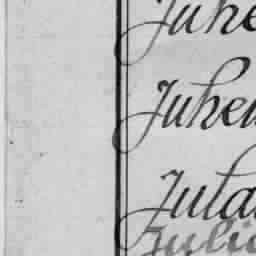 Juhe
Juhen
Jula
Julia